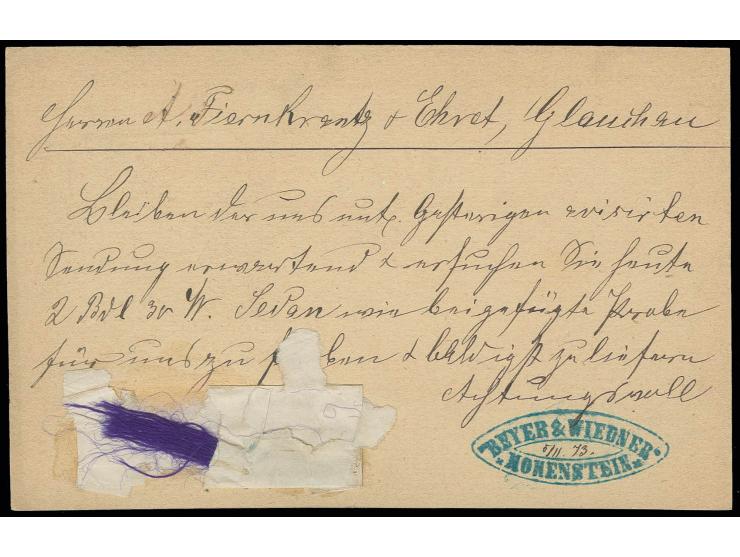 Herren A. Fiernkrantz & Ehret, Glauchau
Bleiben der uns unt. Gestrigen avisirten
Sendung erwartend & ersuchen Sie heute
2 Bdl 30r W. Sedan wie beigefügte Probe
für uns zu färben & baldigst zu liefern
Achtungsvoll
BEYER & WIEDNER
5/11. 73.
HOHENSTEIN